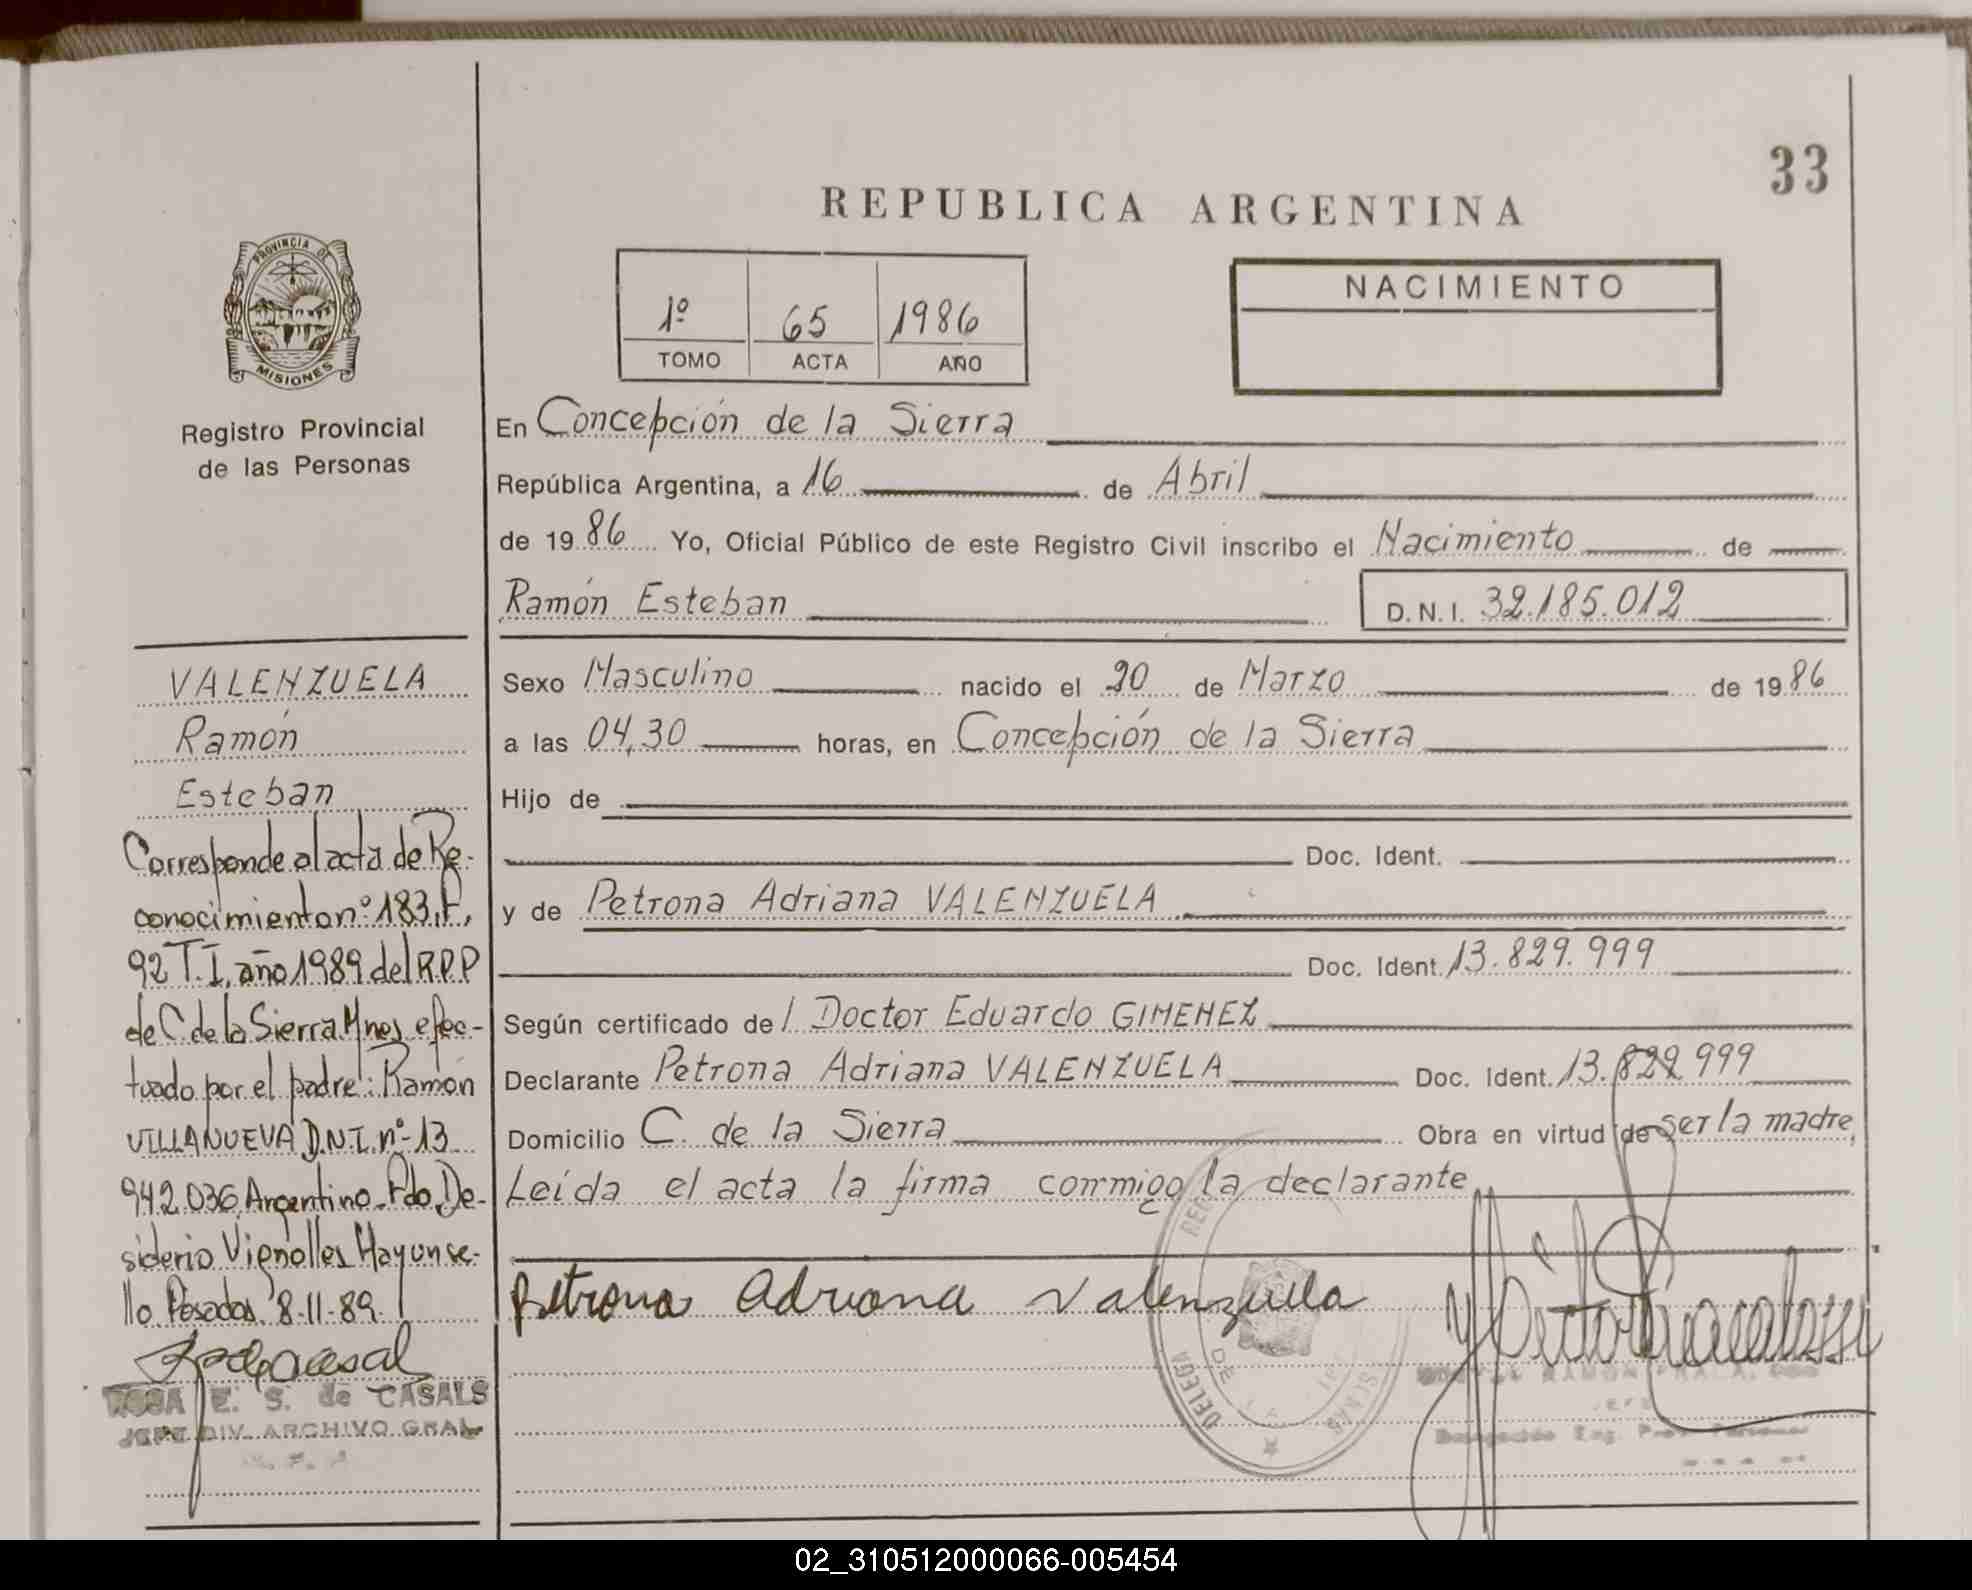 33
REPUBLICA ARGENTINA
PROVINCIA DE
MISIONES
Registro Provincial
de las Personas
1º 65 1986
TOMO ACTA AÑO
NACIMIENTO
En Concepción de la Sierra
República Argentina, a 16 de Abril
de 1986 Yo, Oficial Público de este Registro Civil inscribo el Nacimiento de
Ramón Esteban D.N.I. 32.185.012
Sexo Masculino nacido el 20 de Marzo de 1986
a las 04,30 horas, en Concepción de la Sierra
Hijo de
Doc. Ident.
y de Petrona Adriana VALENZUELA
Doc. Ident. 13.829.999
Según certificado del Doctor Eduardo GIMENEZ
Declarante Petrona Adriana VALENZUELA Doc. Ident. 13.829.999
Domicilio C. de la Sierra Obra en virtud de ser la madre,
Leída el acta la firma conmigo la declarante
Petrona Adriana Valenzuela
VALENZUELA
Ramón
Esteban
Corresponde al acta de Re-
conocimiento nº 183, F,
92 T.I, año 1989 del R.P.P
de C. de la Sierra Mnes efec-
tuado por el padre: Ramón
VILLANUEVA D.N.I. nº 13
942.036, Argentino. Fdo. De-
siderio Vignolles Hay un se-
llo Posadas, 8-11-89.
ROSA E. S. de CASALS
JEFE DIV. ARCHIVO GRAL
02_310512000066-005454